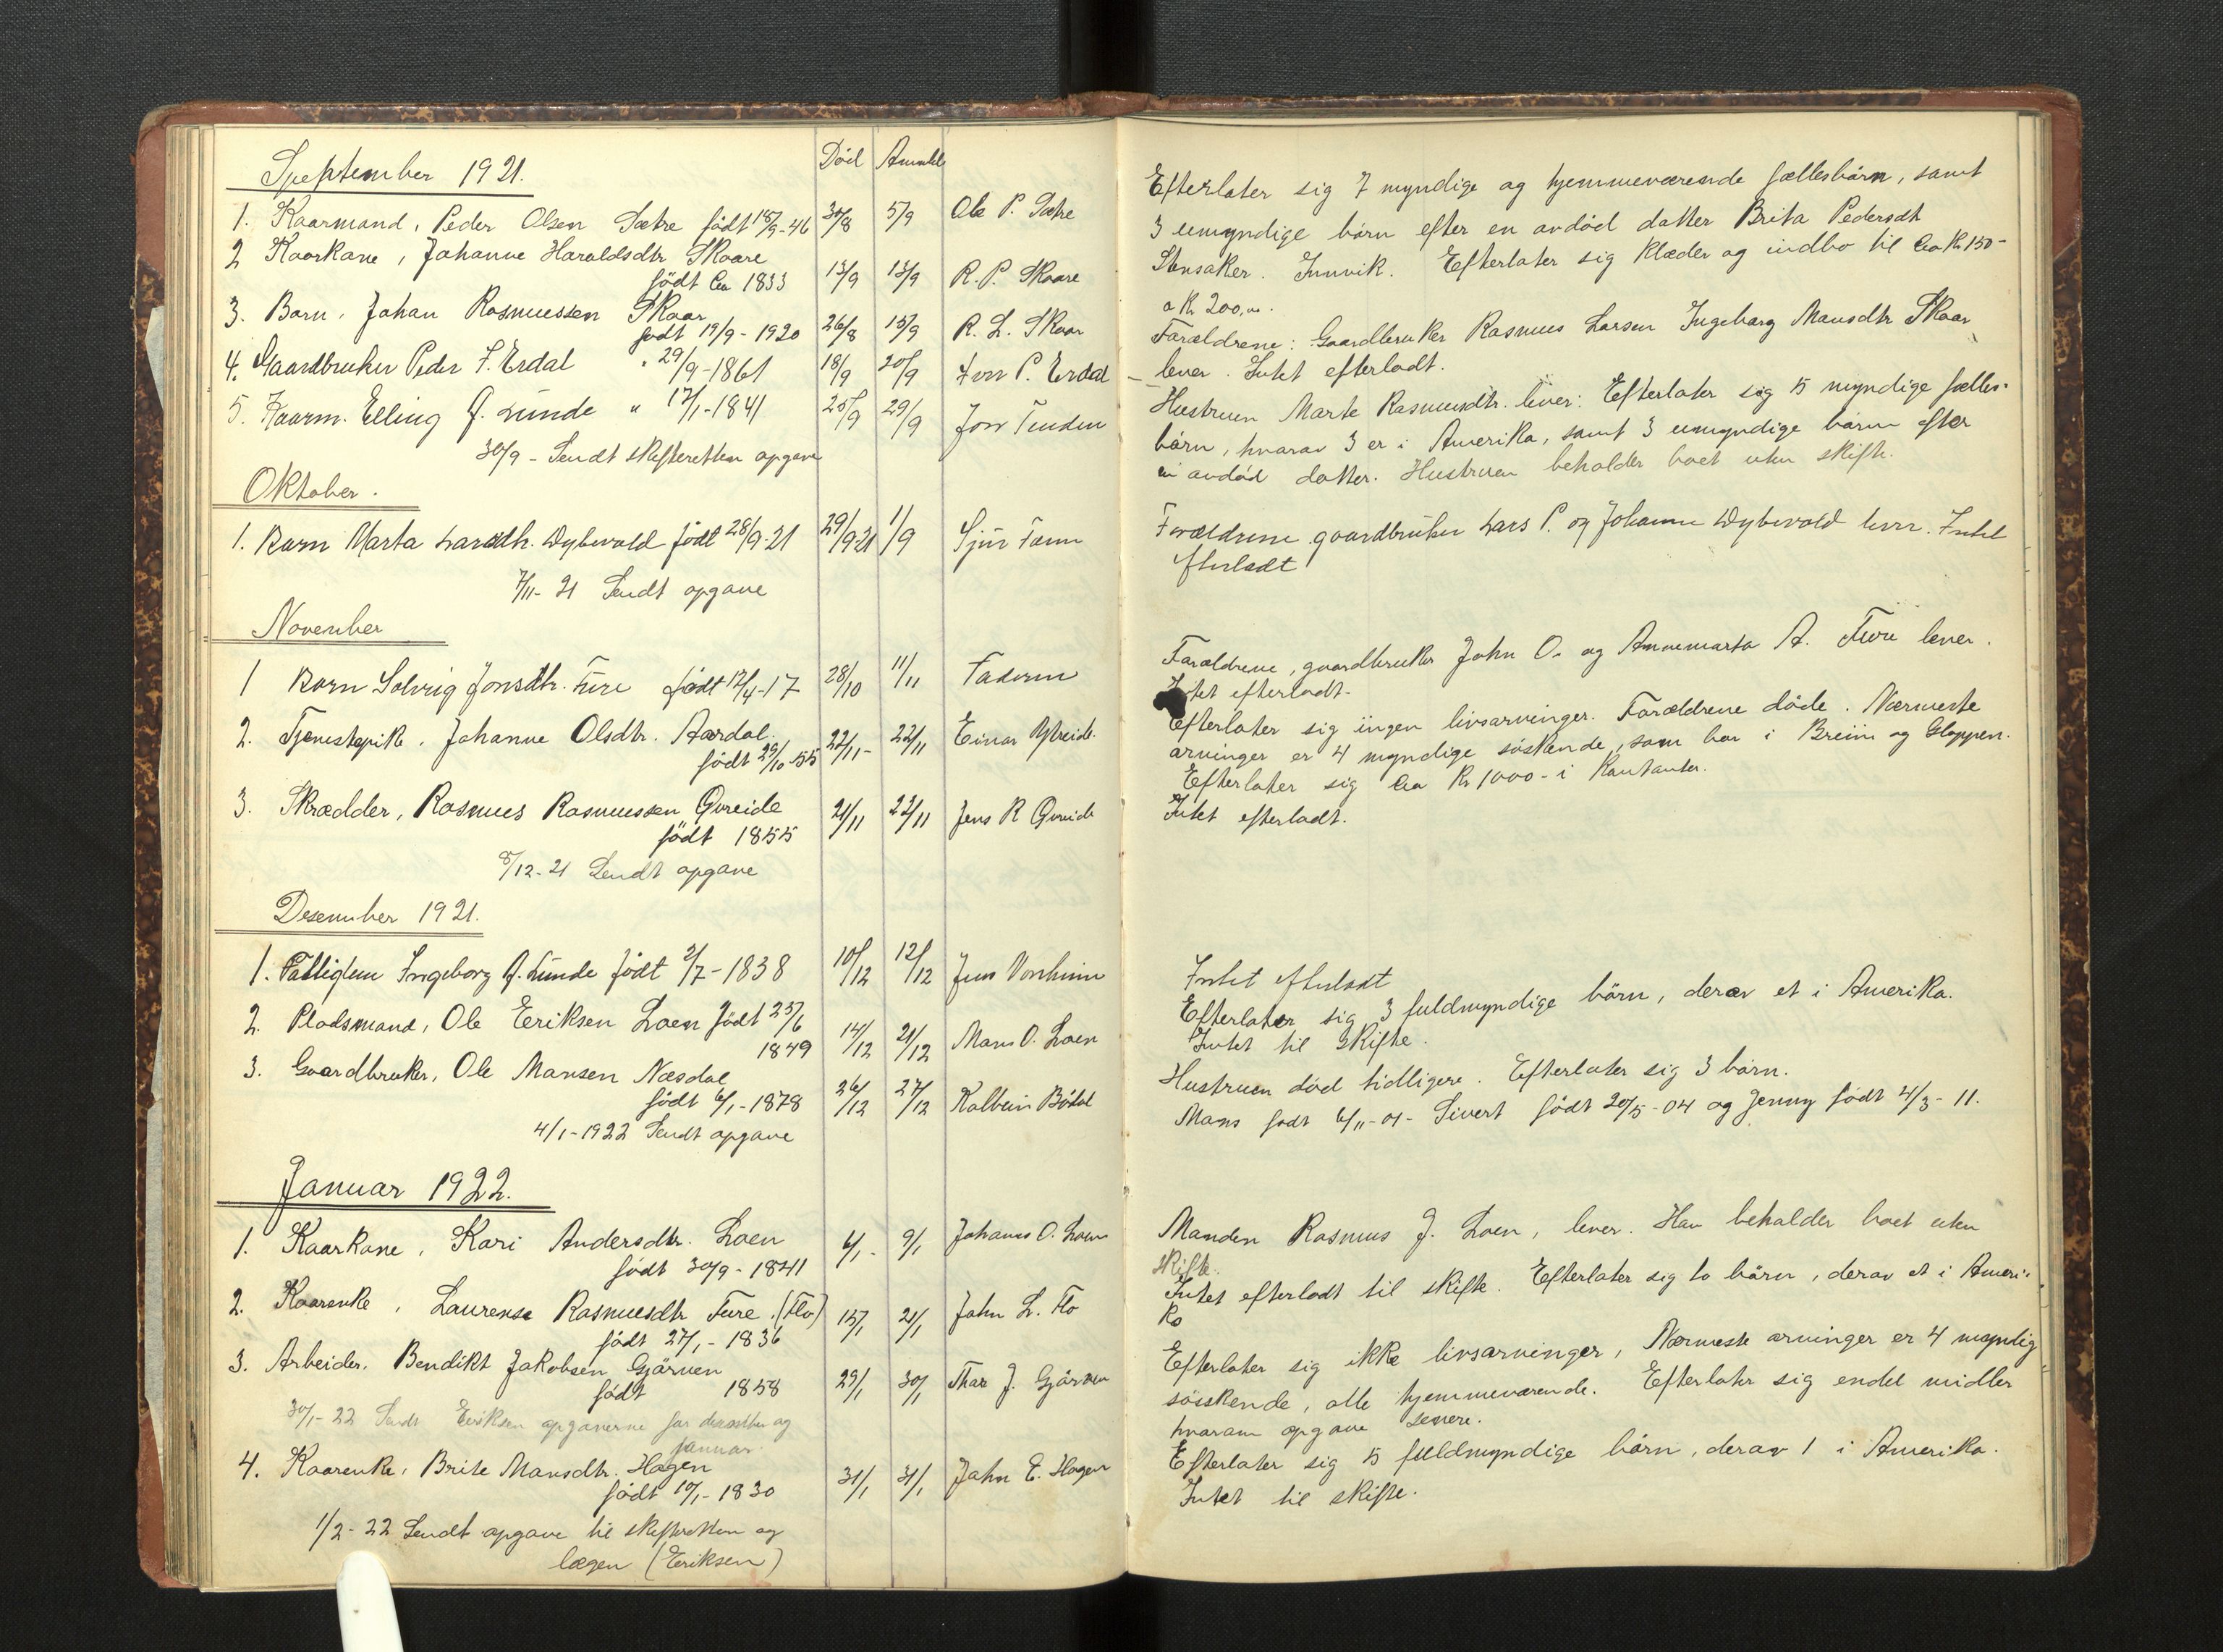 Død Anmeldt
September 1921.
1. Kaarmand, Peder Olsen Sætre født 18/9-46 30/8 5/9 Ole P. Sætre
2 Kaarkone, Johanne Haraldsdtr Skaare
født Ca 1833 13/9 13/9 R. P. Skaare
3. Barn, Johan Rasmussen Skaar
født 19/9 - 1920 26/8 15/9 R. L. Skaar
4. Gaardbruker Peder I. Erdal " 29/9-1861 18/9 20/9 Iver P. Erdal
5. Kaarm. Elling J. Lunde " 17/1-1841 28/9 29/9 Jon Tenden
30/9 - Sendt skifteretten opgave
Oktober.
1. Barn Marta Larsdtr. Dybevold født 28/9-21 29/9-21 1/9 Sjur Fann
7/11- 21 Sendt opgave
November
1 Barn Solvig Jonsdtr. Fure født 12/4-17 28/10 11/11 Faderen
2. Tjenestepike, Johanne Olsdtr. Aardal.
født 29/10-55 22/11- 22/11 Einar
3. Skrædder, Rasmus Rasmussen Qvreide
født 1855 21/11 22/11 Jens R Qvreide
8/12-21 Sendt opgave
Desember 1921.
1. Fattiglem Ingeborg J. Lunde født 2/7-1838 10/12 12/12 Jens Vonheim
2. Pladsmand, Ole Eriksen Loen født 23/6
1849 14/12 21/12 Mans O. Loen
3. Gaardbruker, Ole Mansen Næsdal
født 6/1-1878 26/12 27/12 Kolbein Bødal
4/1-1922 Sendt opgave
Januar 1922.
1. Kaarkone, Kari Andersdtr. Loen
født 30/9-1841 6/1- 9/1 Johanes O. Loen
2. Kaarenke, Laurense Rasmusdtr Fure (Flo)
født 27/1-1836 15/1 21/1 John L. Flo
3. Arbeider. Bendikt Jakobsen Gjørven
født 1858 29/1 30/1 Thor J. Gjørven
30/1-22 Sendt Eriksen opgaverne for desember og
januar.
4. Kaarenke, Brite Mansdtr. Hagen
født 10/1-1830 31/1 31/1 John E. Hagen
1/2-22 Sendt opgave til skifteretten og
lægen (Eriksen)
Efterlater sig 7 myndige og hjemmeværende fællesbørn, samt
3 umyndige børn efter en avdød datter Brita Pedersdt
Stensaker. Innvik. Efterlater sig klæder og indbo til Ca Kr 150-
a Kr 200,00.
Forældrene: Gaardbruker Rasmus Larsen Ingeborg Mansdtr Skaar
lever. Intet efterladt.
Hustruen Marte Rasmusdtr. lever. Efterlater sig 5 myndige fælles-
børn, hvorav 3 er i Amerika, samt 3 umyndige børn efter
en avdød datter. Hustruen beholder boet uten skifte.
Forældrene gaardbruker Lars P. og Johanne Dybevold lever. Intet
efterladt
Forældrene, gaardbruker John O. og Annemarta A. Fure lever.
Intet efterladt-
Efterlater sig iingen livsarvinger. Forældrene døde. Nærmeste
arvinger er 4 myndige søskende, som bor i Breim og Gloppen.
Efterlater sig Ca Kr 1000- i kontanter.
Intet efterladt.
Intet efterladt
Efterlater sig 3 fuldmyndige børn, derav et i Amerika.
Intet til skifte.
Hustruen død tidligere. Efterlater sig 3 børn.
Mans født 6/11-01- Sivert født 20/5-04 og Jenny født 4/3-11.
Manden Rasmus J. Loen, lever. Han beholder boet uten
skifte.
Intet efterladt til skifte. Efterlater sig to børn, derav et i Ameri-
ka
Efterlater sig ikke livsarvinger, Nærmeste arvinger er 4 myndig
søsskende, alle hjemmeværende. Efterlater sig endel midler
hvorom opgave senere.
Efterlater sig 5 fuldmyndige børn, derav 1 i Amerika.
Intet til skifte.